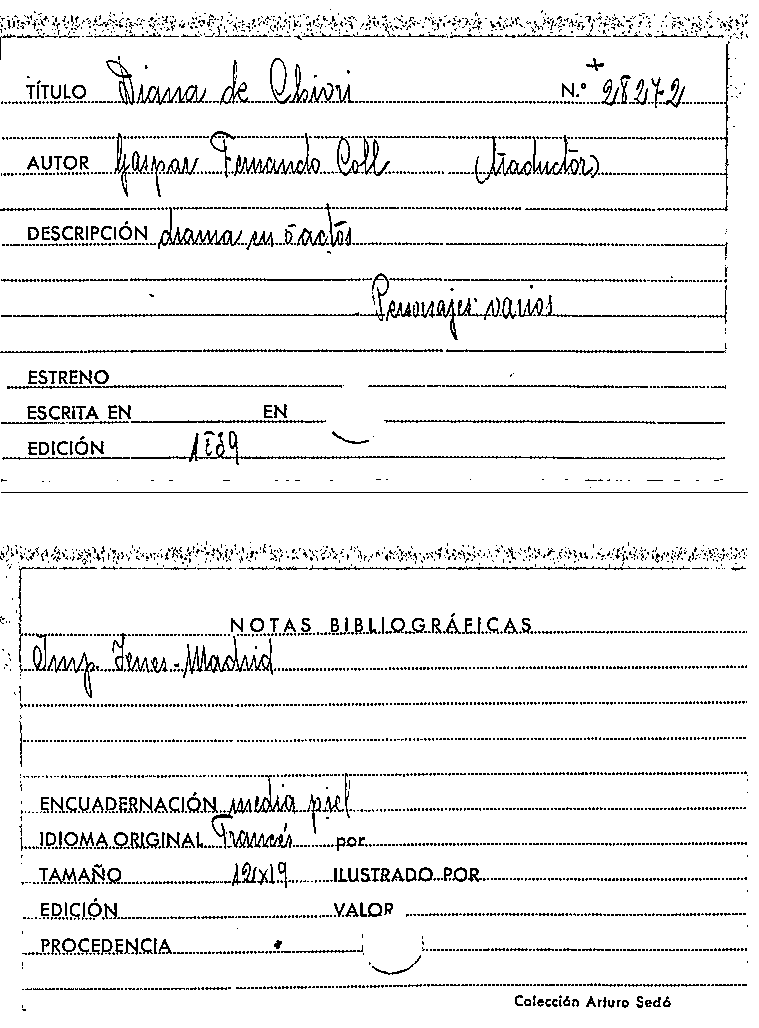 TÍTULO Diana de Chivri N.º + 28272
AUTOR Gaspar Fernando Coll (traductor)
DESCRIPCIÓN drama en 5 actos
Personajes: varios
ESTRENO
ESCRITA EN EN
EDICIÓN 1839
NOTAS BIBLIOGRÁFICAS
Imp. Yenes-Madrid
ENCUADERNACIÓN media piel
IDIOMA ORIGINAL Francés por
TAMAÑO 12x19 ILUSTRADO POR
EDICIÓN VALOR
PROCEDENCIA
Colección Arturo Sedó